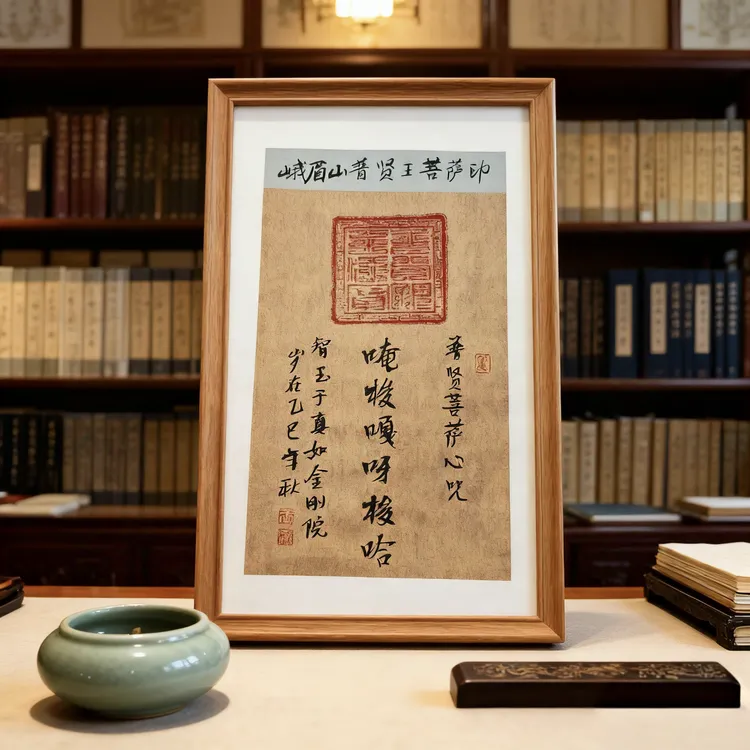 峨眉山普贤王菩萨印
普贤菩萨心咒
唵梭嘎呀梭哈
智玉于真如金刚院
岁在乙巳年秋